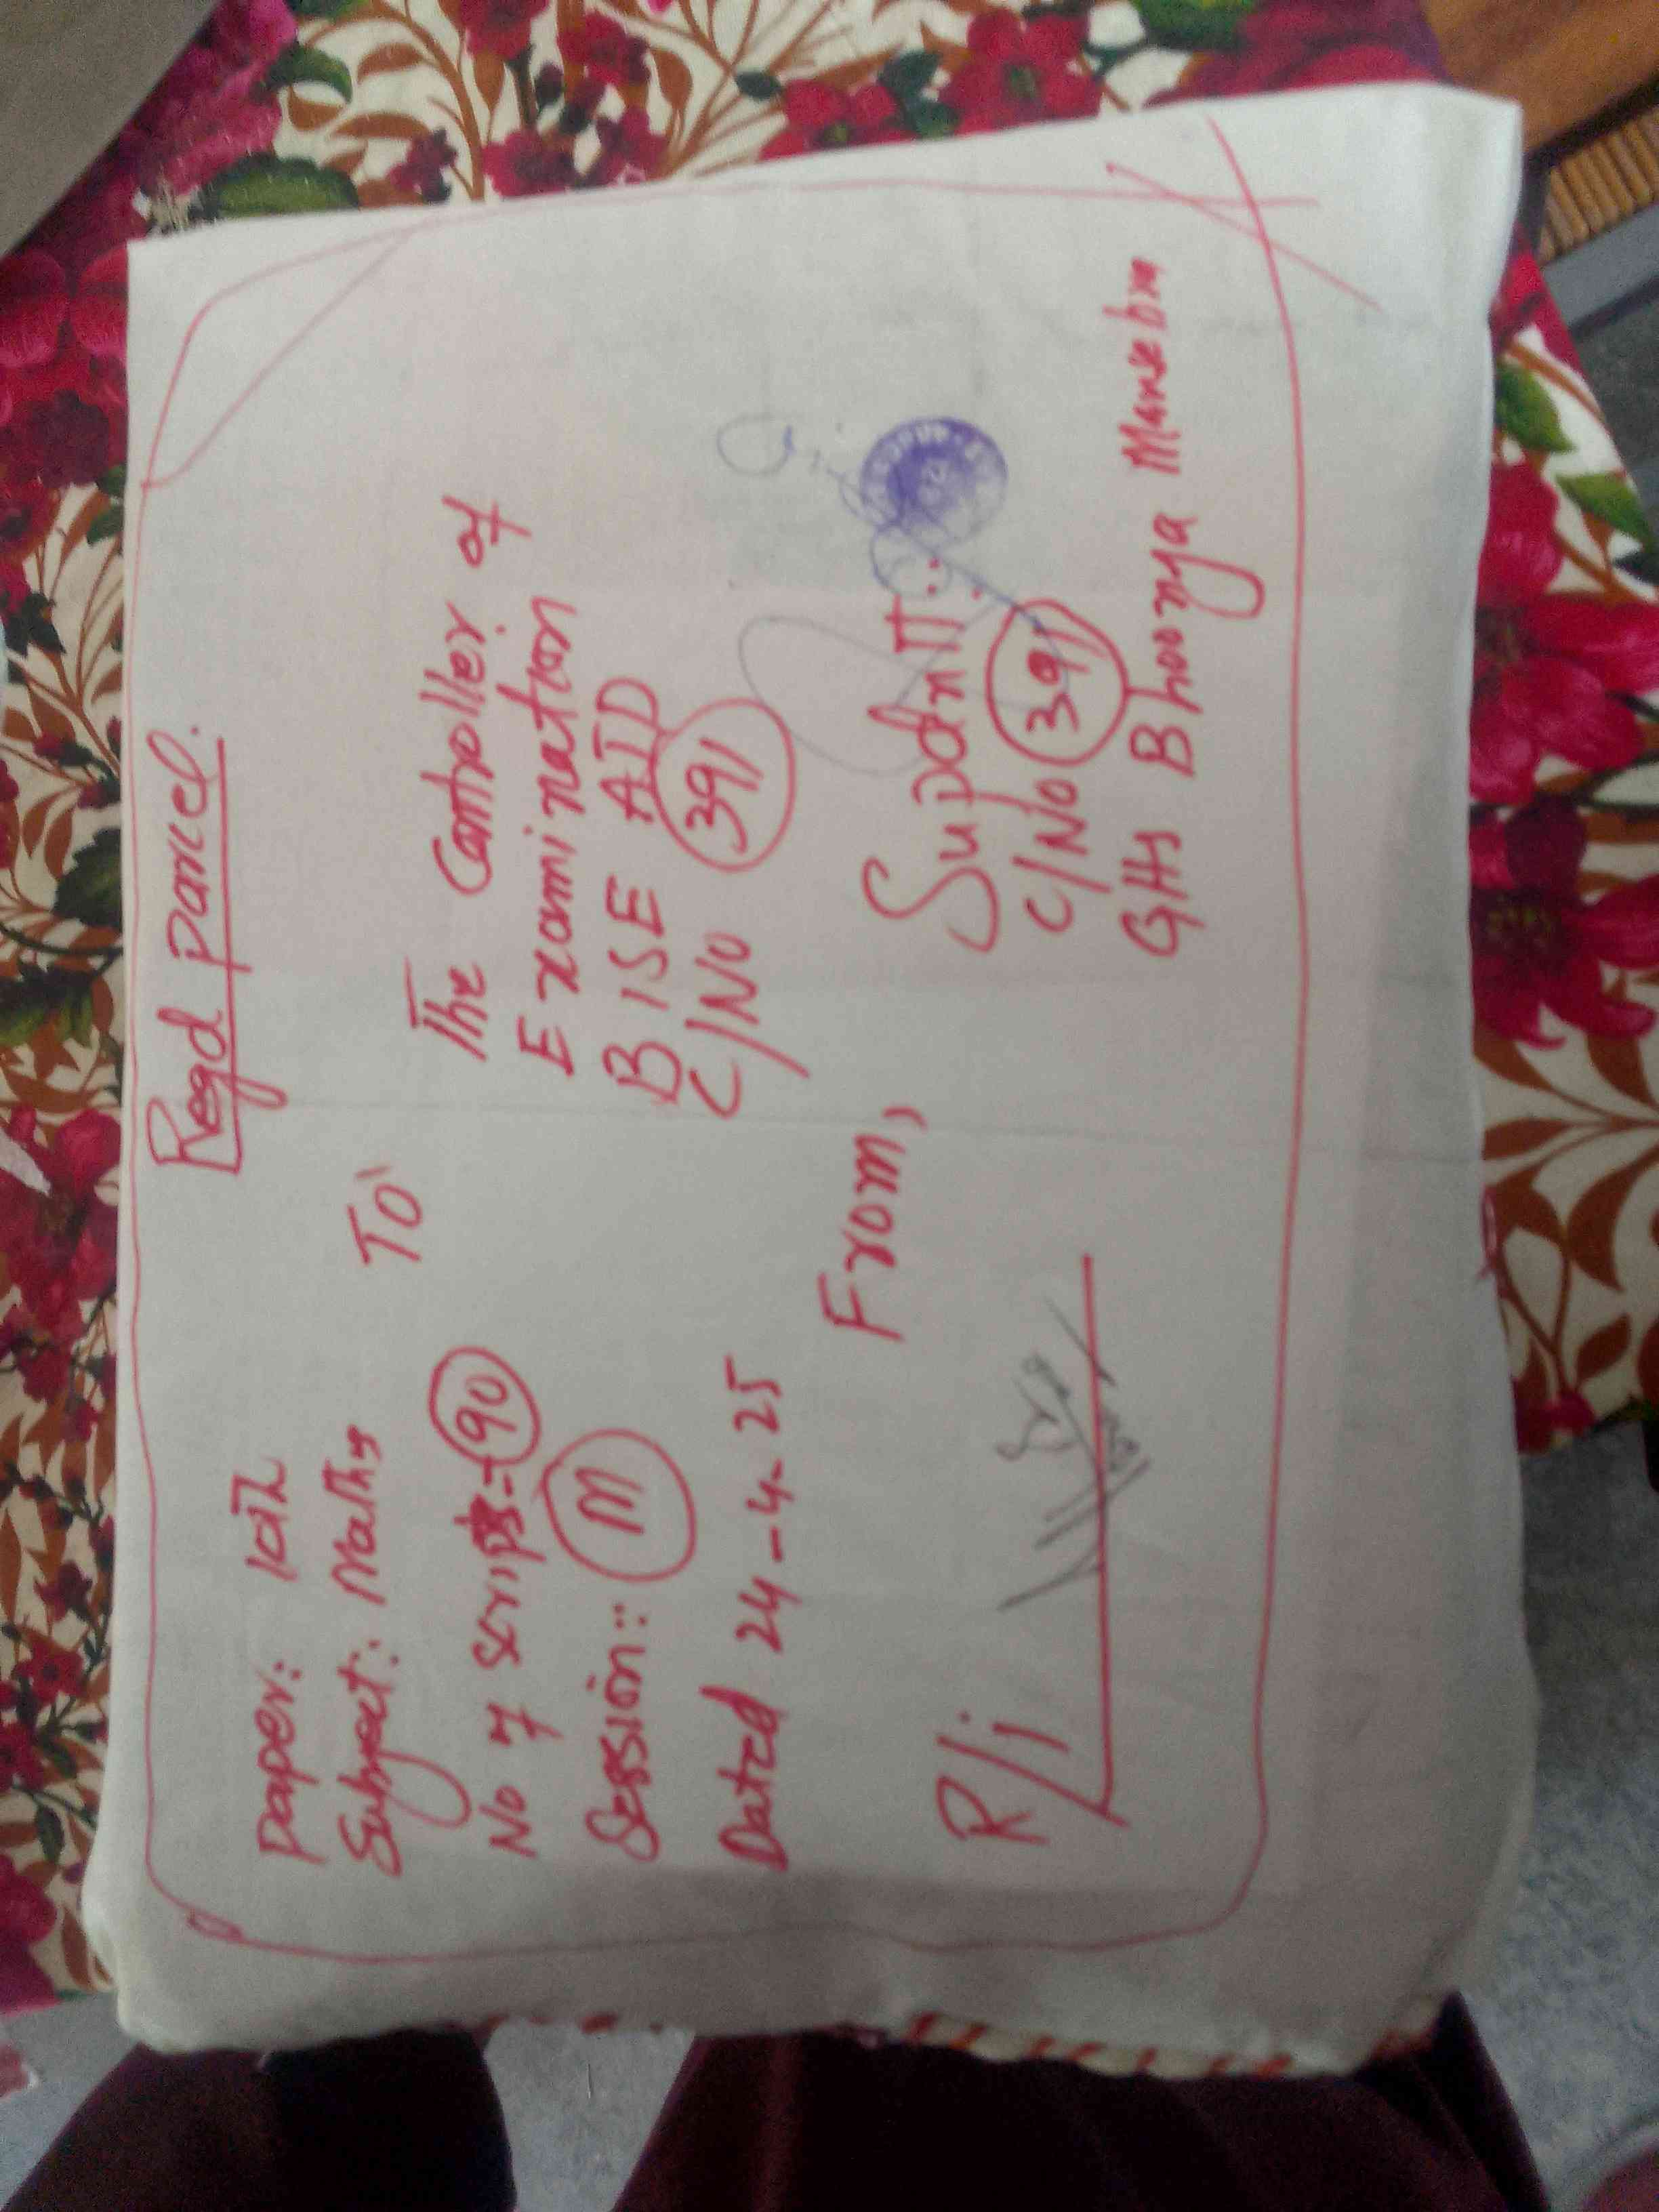 Regd Parcel.
Paper: 10th
Subject: Maths
No of Scripts - 90
Session:: M
Dated 24-4-25
To
The Controller of
Examination
BISE ATD
C/No 391
From,
Supdntt:
C/No 391
GHS Bhoonya Mansehra
R/i